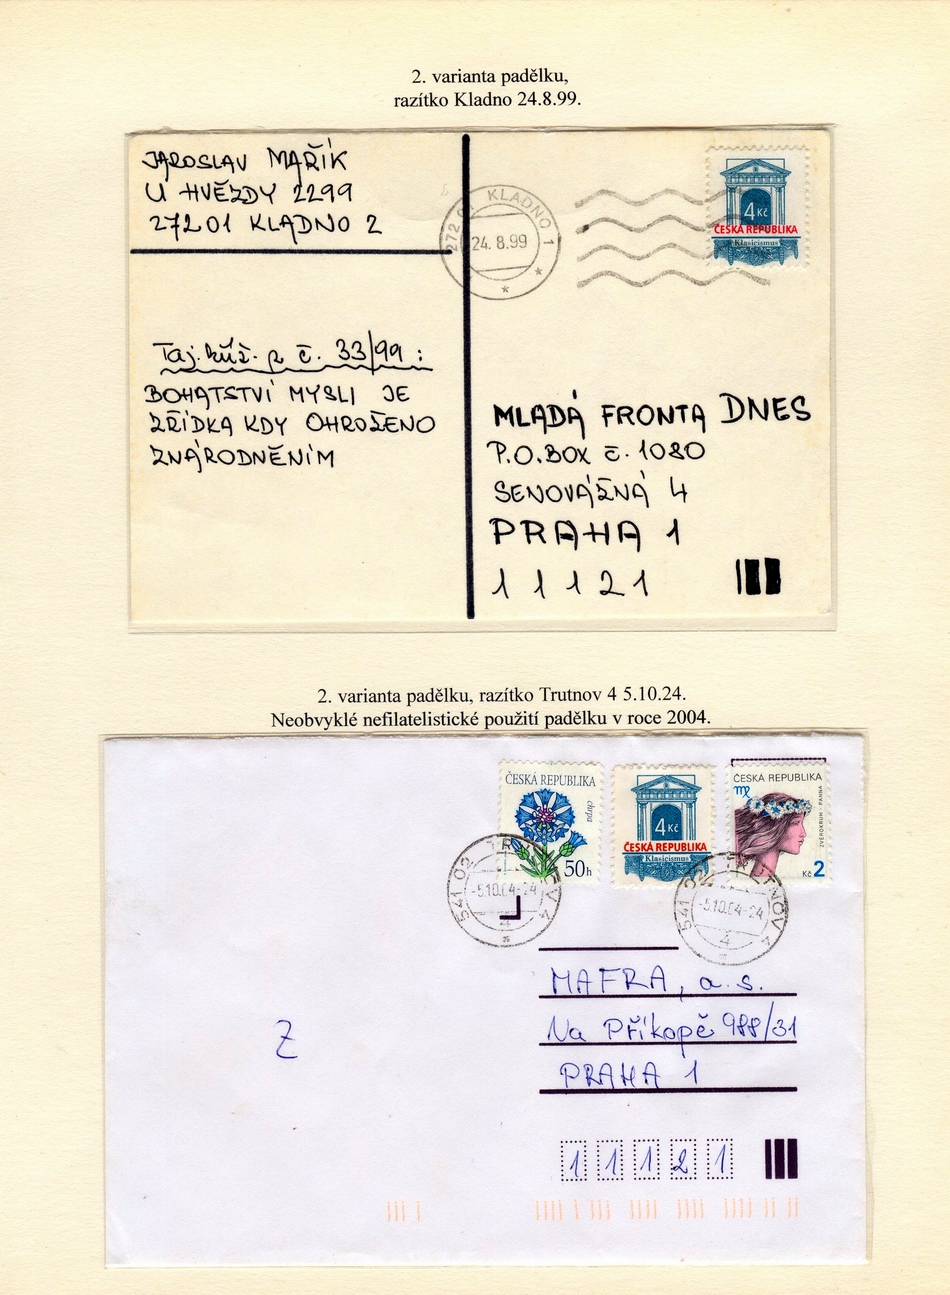 2. varianta padělku,
razítko Kladno 24.8.99.
JAROSLAV MAŘÍK
U HVĚZDY 2299
27201 KLADNO 2
KLADNO 1
24. 8.99
4 Kč
ČESKÁ REPUBLIKA
Klasicismus
Taj. kříž. z č. 33/99 :
BOHATSTVÍ MYSLI JE
ZŘÍDKA KDY OHROŽENO
ZNÁRODNĚNÍM
MLADÁ FRONTA DNES
P.O.BOX č. 1080
SENOVÁŽNÁ 4
PRAHA 1
11121
2. varianta padělku, razítko Trutnov 4 5.10.24.
Neobvyklé nefilatelistické použití padělku v roce 2004.
ČESKÁ REPUBLIKA
chrpa
50h
4 Kč
ČESKÁ REPUBLIKA
Klasicismus
ČESKÁ REPUBLIKA
ZVĚROKRUH - PANNA
Kč 2
541 02 TRUTNOV 4
-5.10.04-24
541 02 TRUTNOV 4
-5.10.04-24
4
MAFRA, a.s.
Na Příkopě 988/31
PRAHA 1
Z
11121